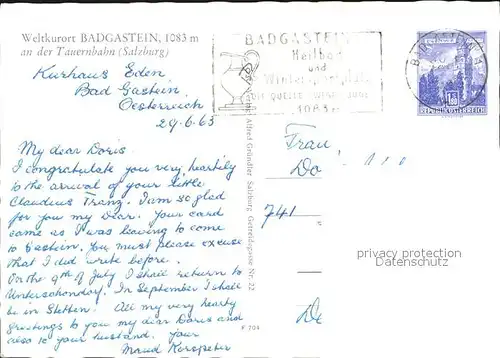 Weltkurort BADGASTEIN, 1083 m
an der Tauernbahn (Salzburg)
Kurhaus Eden,
Bad Gastein,
Oesterreich
29.6.63
My dear Doris.
I congratulate you very heartily
to the arrival of your little
Claudius Franz. I am so glad
for you my dear. Your card
came as I was leaving to come
to Gastein. You must please excuse
that I did write before.
On the 9th of July I shall return to
Unterschondorf. In September I shall
be in Stetten. All my very hearty
greetings to you my dear Doris and
also to your husband. Your
Maud
BADGASTEIN
Heilbad
und
1083 m
REPUBLIK ÖSTERREICH
Verlag Alfred Gründler Salzburg, Getreidegasse Nr. 22
F 704
Frau
Do
741
privacy protection
Datenschutz